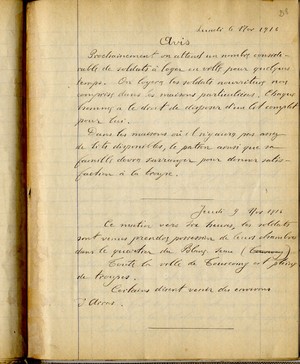 Lundi 6 Nov 1916
Avis
Prochainement on attend un nombre considé-
rable de soldats à loger en ville pour quelques
temps. On logera les soldats nourriture non
comprise dans les maisons particulières. Chaque
homme a le droit de disposer d'un lit complet
pour lui.
Dans les maisons où il n'y aurait pas assez
de lits disponibles, le patron ainsi que sa
famille devra s'arranger pour donner satis-
faction à la troupe.
Jeudi 9 Nov 1916
Ce matin vers dix heures, les soldats
sont venus prendre possession de leurs chambres
dans le quartier du Blanc Seau (Tourcoing)
Toute la ville de Tourcoing est pleine
de troupes.
Certains disent venir des environs
d'Arras.